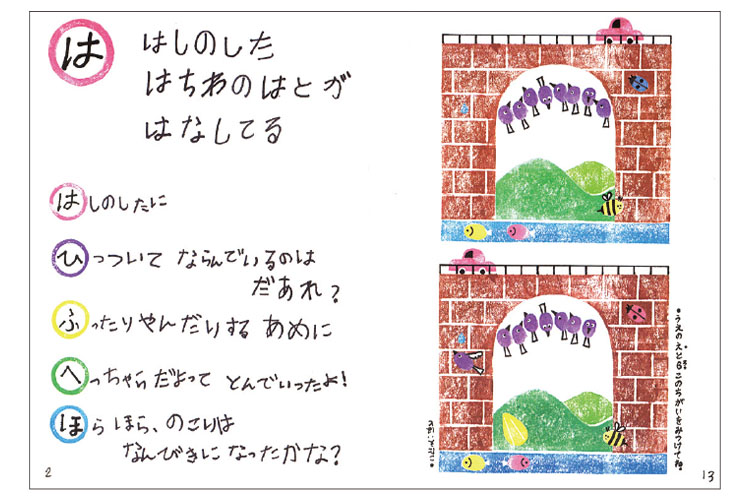 は
はしのした
はちわのはとが
はなしてる
はしのしたに
ひっついて ならんでいるのは
だあれ?
ふったりやんだりする あめに
へっちゃらだよって とんでいったよ!
ほらほら、のこりは
なんびきに なったかな?
2
うえのえと6このちがいをみつけてね。
13